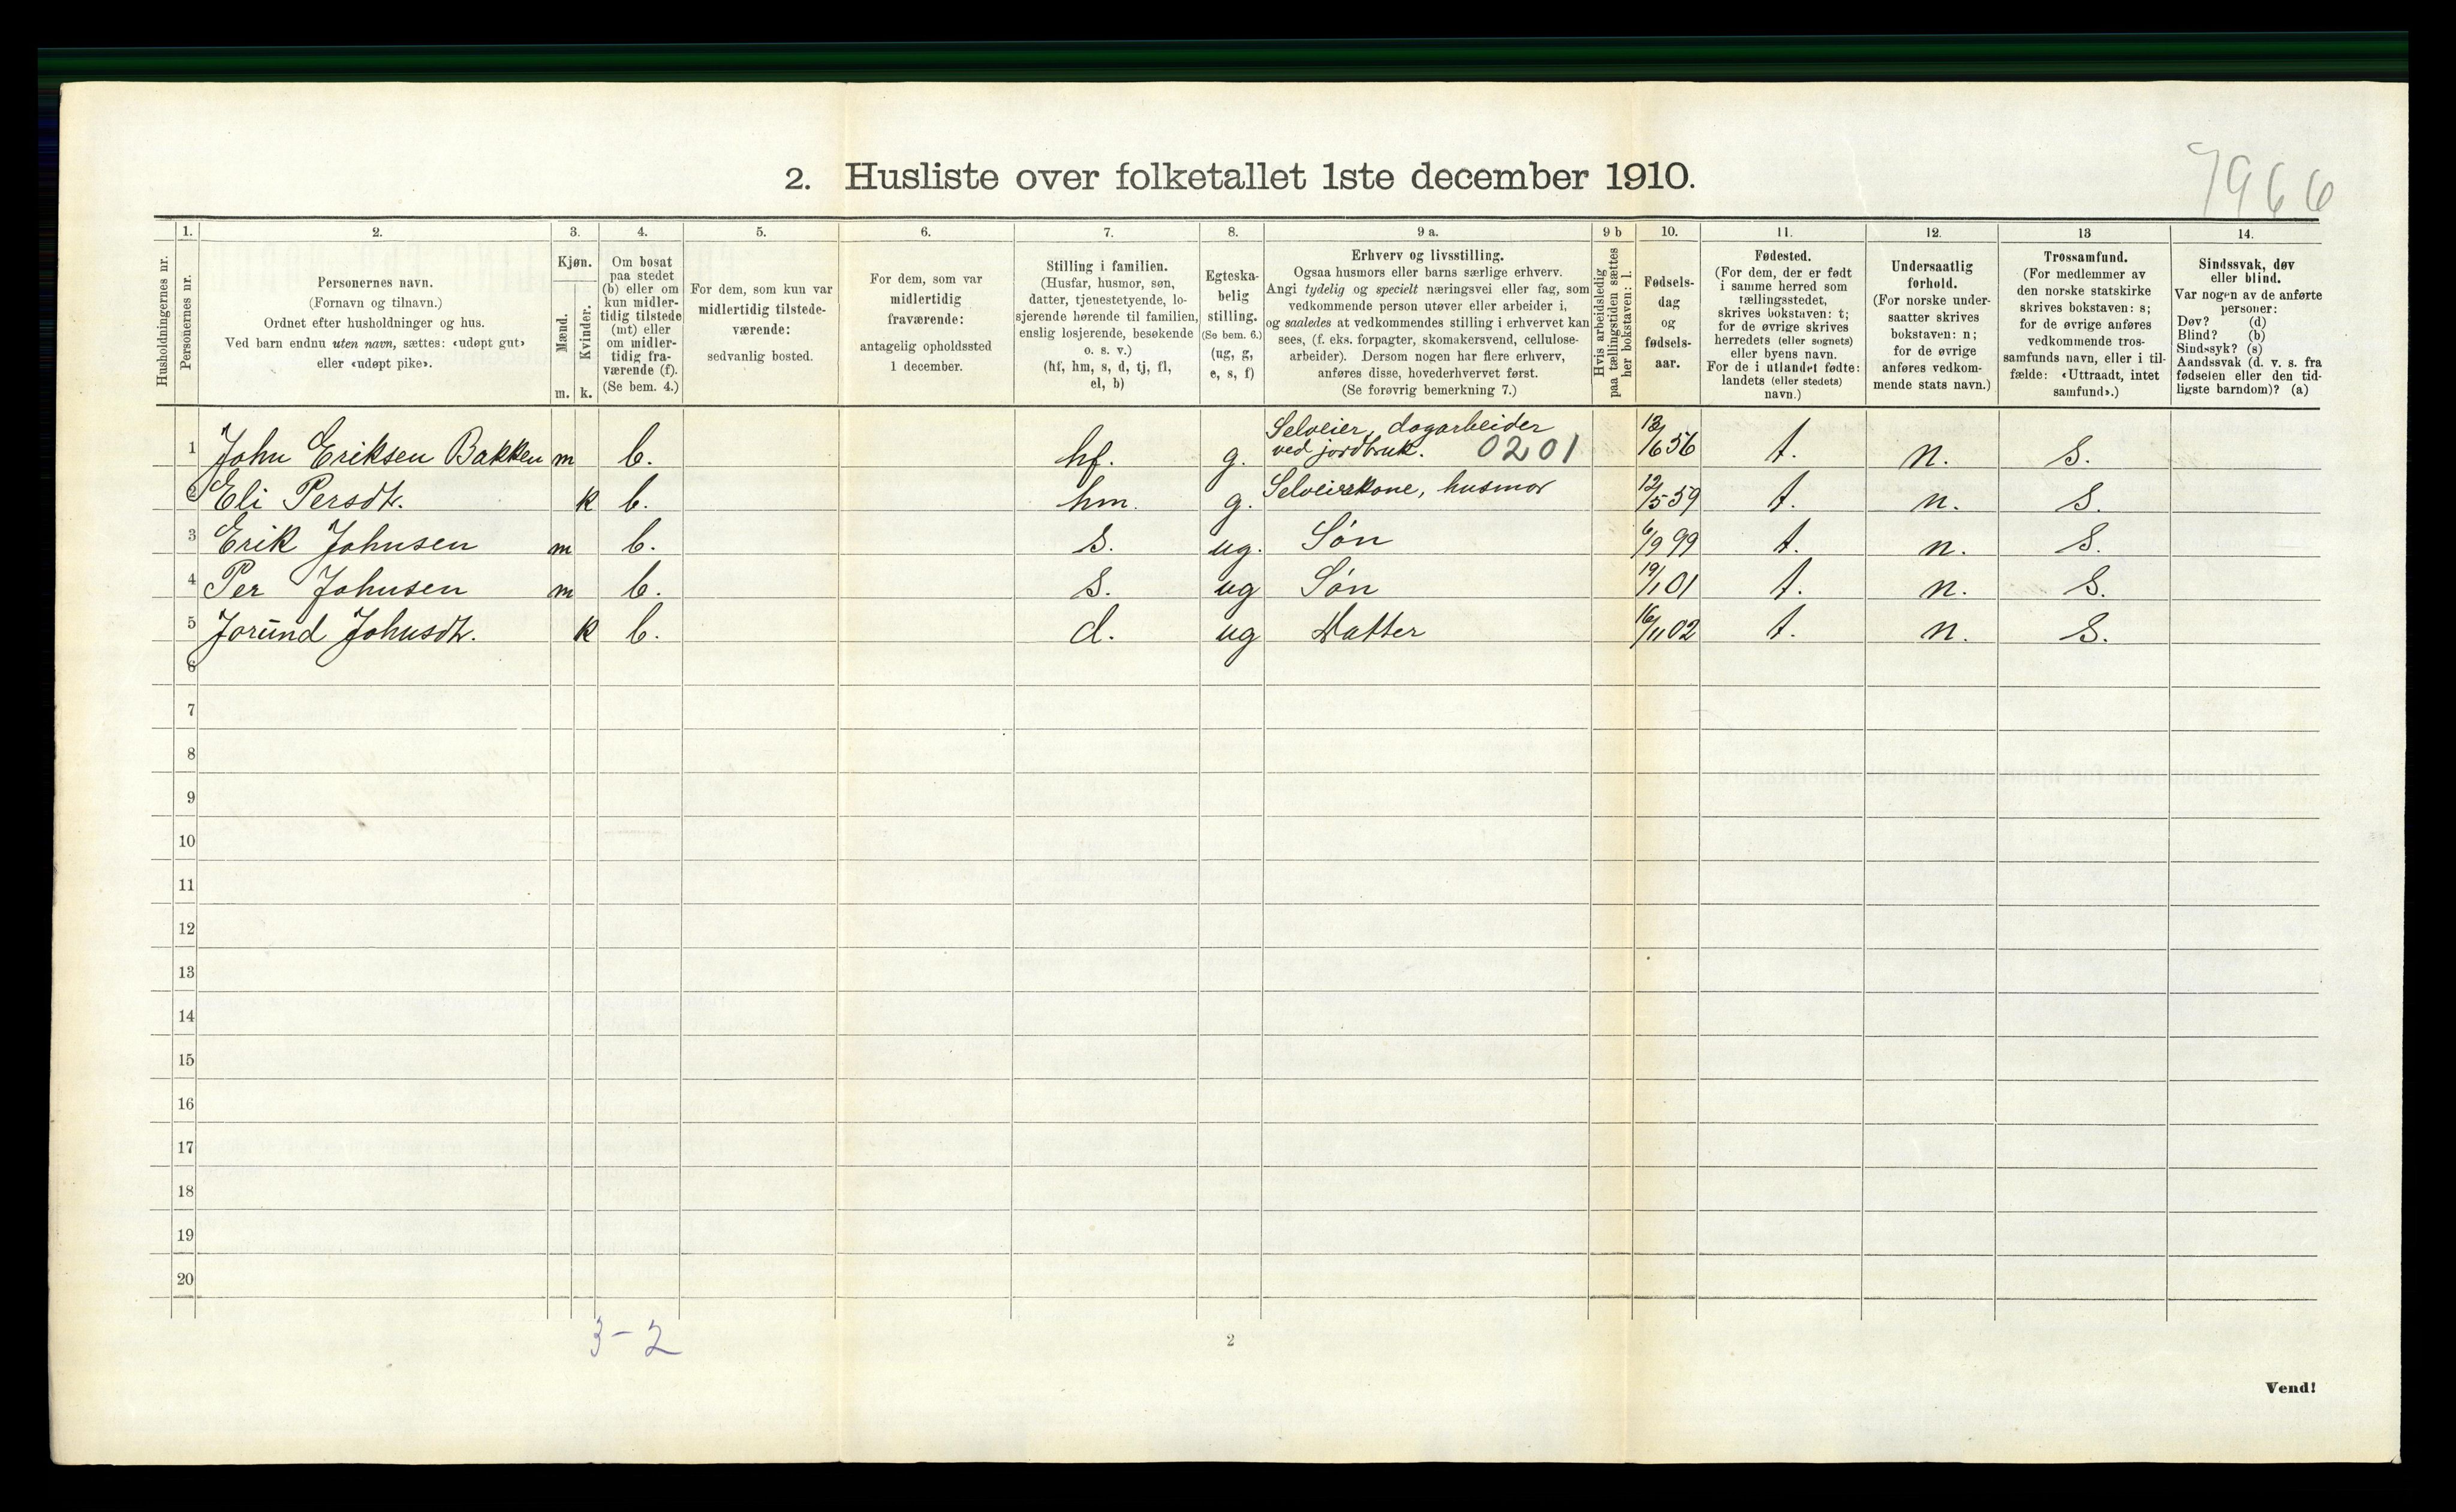 7966
2. Husliste over folketallet 1ste december 1910.
1. 2. 3. 4. 5. 6. 7. 8. 9 a. 9 b 10. 11. 12. 13 14.
Husholdningernes nr.
Personernes nr.
Personernes navn.
(Fornavn og tilnavn.)
Ordnet efter husholdninger og hus.
Ved barn endnu uten navn, sættes: «udøpt gut»
eller «udøpt pike».
Kjøn.
Mænd.
Kvinder.
m. k.
Om bosat
paa stedet
(b) eller om
kun midler-
tidig tilstede
(mt) eller
om midler-
tidig fra-
værende (f).
(Se bem. 4.)
For dem, som kun var
midlertidig tilstede-
værende:
sedvanlig bosted.
For dem, som var
midlertidig
fraværende:
antagelig opholdssted
1 december.
Stilling i familien.
(Husfar, husmor, søn,
datter, tjenestetyende, lo-
sjerende hørende til familien,
enslig losjerende, besøkende
o. s. v.)
(hf, hm, s, d, tj, fl,
el, b)
Egteska-
belig
stilling.
(Se bem. 6.)
(ug, g,
e, s, f)
Erhverv og livsstilling.
Ogsaa husmors eller barns særlige erhverv.
Angi tydelig og specielt næringsvei eller fag, som
vedkommende person utøver eller arbeider i,
og saaledes at vedkommendes stilling i erhvervet kan
sees, (f. eks. forpagter, skomakersvend, cellulose-
arbeider). Dersom nogen har flere erhverv,
anføres disse, hovederhvervet først.
(Se forøvrig bemerkning 7.)
Hvis arbeidsledig
paa tællingstiden sættes
her bokstaven: l.
Fødsels-
dag
og
fødsels-
aar.
Fødested.
(For dem, der er født
i samme herred som
tællingsstedet,
skrives bokstaven: t;
for de øvrige skrives
herredets (eller sognets)
eller byens navn.
For de i utlandet fødte:
landets (eller stedets)
navn.)
Undersaatlig
forhold.
(For norske under-
saatter skrives
bokstaven: n;
for de øvrige
anføres vedkom-
mende stats navn.)
Trossamfund.
(For medlemmer av
den norske statskirke
skrives bokstaven: s;
for de øvrige anføres
vedkommende tros-
samfunds navn, eller i til-
fælde: «Uttraadt, intet
samfund».)
Sindssvak, døv
eller blind.
Var nogen av de anførte
personer:
Døv? (d)
Blind? (b)
Sindssyk? (s)
Aandssvak (d. v. s. fra
fødselen eller den tid-
ligste barndom)? (a)
1 John Eriksen Bakken m b. hf. g. Selveier, dagarbeider
ved jordbruk. 0201 13/6 56 t. n. s.
2 Eli Persdt. k b. hm. g. Selveierskone, husmor 12/5 59 t. n. s.
3 Erik Johnsen m b. s. ug. Søn 6/9 99 t. n. s.
4 Per Johnsen m b. s. ug Søn 19/1 01 t. n. s.
5 Jorund Johnsdt. k b. d. ug Datter 16/11 02 t. n. s.
6
7
8
9
10
11
12
13
14
15
16
17
18
19
20
3-2
2
Vend!